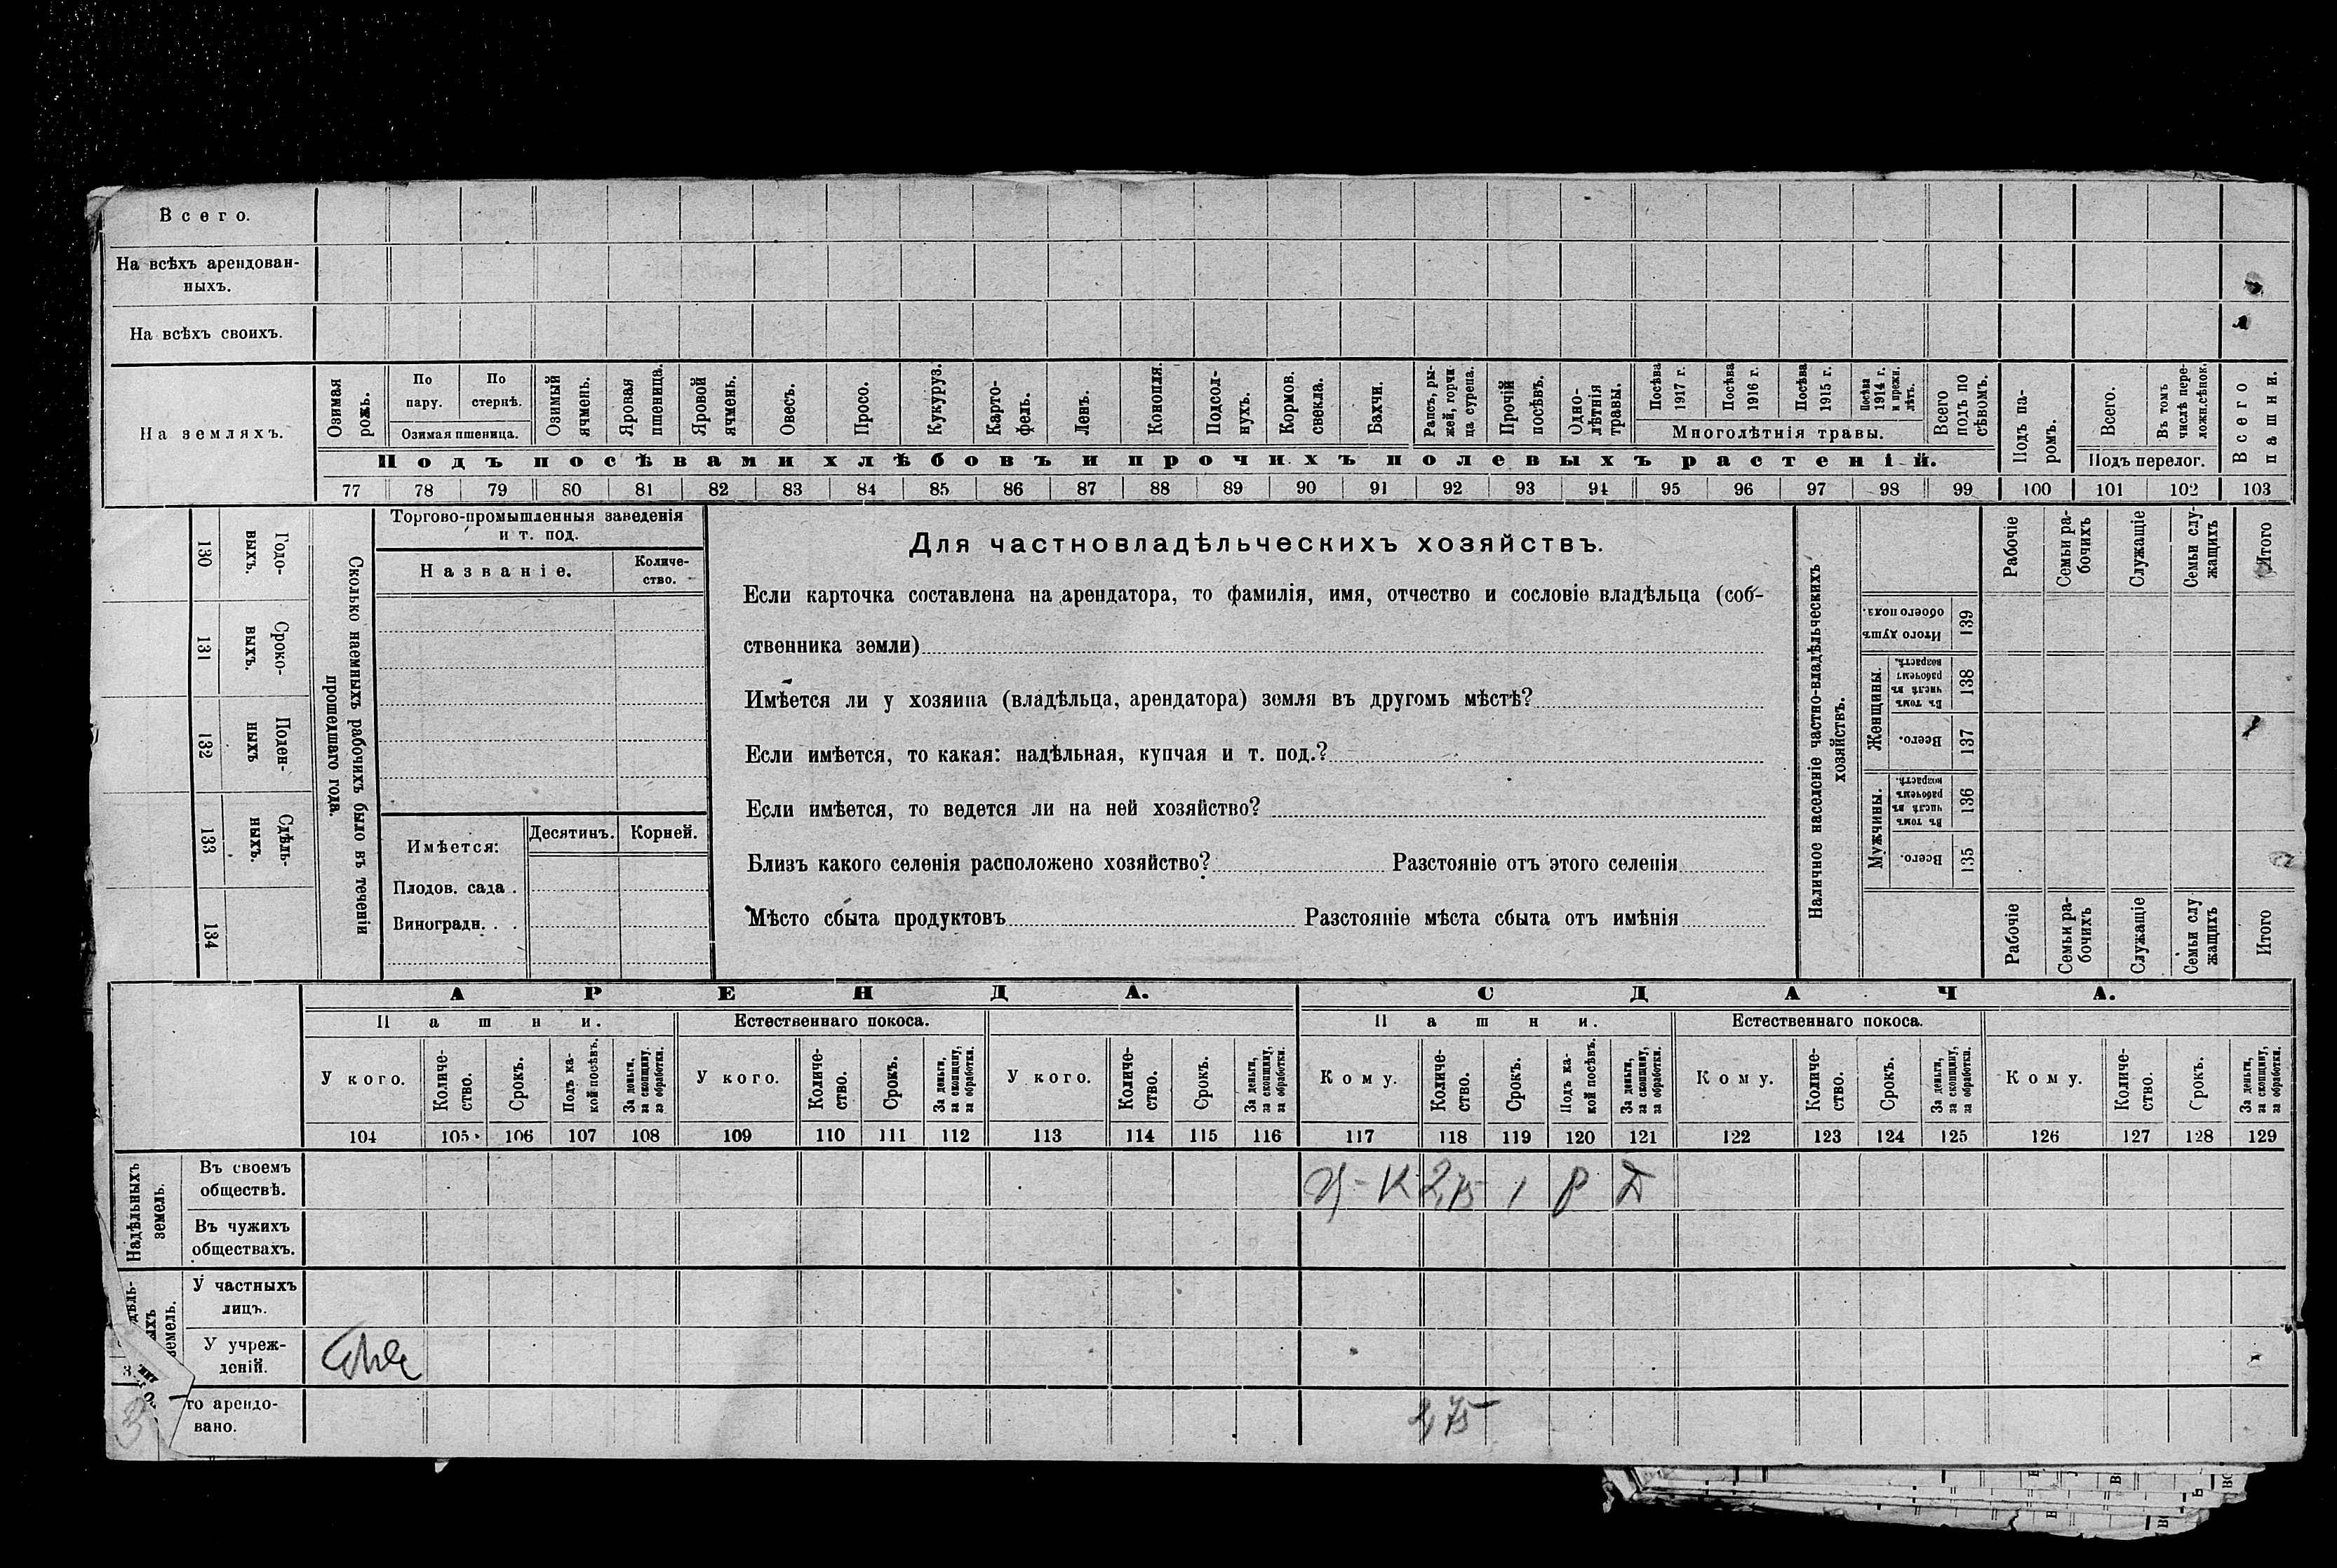 Всего.
На всѣхъ арендован-
ныхъ.
На всѣхъ своихъ.
На земляхъ.
Озимая рожь.
По пару.
По стернѣ.
Озимая пшеница.
Озимый ячмень.
Яровая пшеница.
Яровой ячмень.
Овесъ.
Просо.
Кукуруз.
Карто-
фель.
Ленъ.
Конопля.
Подсол-
нухъ.
Кормов. свекла.
Бахчи.
Рапсъ, ры-
жей, горчи
ца сурепа.
Прочій посѣвъ.
Одно-
лѣтнія
травы.
Посѣва 1917 г.
Посѣва 1916 г.
Посѣва 1915 г.
Посѣва 1914 г. и прежн. лѣтъ.
Многолѣтнія травы.
Всего подъ по
сѣвомъ.
Подъ па-
ромъ.
Всего.
Въ томъ числѣ пере-
ложн.сѣнок.
Подъ перелог.
Всего пашни.
Подъ посѣвами хлѣбовъ и прочихъ полевыхъ растеній.
77 78 79 80 81 82 83 84 85 86 87 88 89 90 91 92 93 94 95 96 97 98 99 100 101 102 103
130 Годо-
выхъ.
131 Сроко-
выхъ.
132 Поден-
ныхъ
133 Сдѣль-
ныхъ.
134
Сколько наемныхъ рабочихъ было въ теченіи
прошедшаго года.
Торгово-промышленныя заведенія
и т. под.
Названіе.
Количе-
ство.
Имѣется:
Десятинъ.
Корней.
Плодов. сада .
Виноградн. . .
Для частновладѣльческихъ хозяйствъ.
Если карточка составлена на арендатора, то фамилія, имя, отчество и сословіе владѣльца (соб-
ственника земли)
Имѣется ли у хозяина (владѣльца, арендатора) земля въ другомъ мѣстѣ?
Если имѣется, то какая: надѣльная, купчая и т. под.?
Если имѣется, то ведется ли на ней хозяйство?
Близъ какого селенія расположено хозяйство? Разстояніе отъ этого селенія
Мѣсто сбыта продуктовъ Разстояніе мѣста сбыта отъ имѣнія
Наличное населеніе частно-владѣльческихъ
хозяйствъ.
Рабочіе
Семьи ра-
бочихъ
Служащіе
Семьи слу-
жащихъ
Итого
Итого душъ обоего пола. 139
Женщины.
Въ томъ числѣ въ рабочемъ возрастѣ. 138
Всего. 137
Мужчины.
Въ томъ числѣ въ рабочемъ возрастѣ. 136
Всего. 135
Рабочіе
Семьи ра-
бочихъ
Служащіе
Семьи слу
жащихъ
Итого
АРЕНДА. СДАЧА.
Пашни. Естественнаго покоса. Пашни. Естественнаго покоса.
У кого.
Количе-
ство.
Срокъ.
Подъ ка-
кой посѣвъ.
За деньги, за скопщину, за обработки.
У кого.
Количе-
ство.
Срокъ.
За деньги, за скопщину, за обработки.
У кого.
Количе-
ство.
Срокъ.
За деньги, за скопщину, за обработки.
Кому.
Количе-
ство.
Срокъ.
Подъ ка-
кой посѣвъ.
За деньги, за скопщину, за обработки.
Кому.
Количе-
ство.
Срокъ.
За деньги, за скопщину, за обработки.
Кому.
Количе-
ство.
Срокъ.
За деньги, за скопщину, за обработки.
104 105 106 107 108 109 110 111 112 113 114 115 116 117 118 119 120 121 122 123 124 125 126 127 128 129
Надѣльныхъ
земель.
Въ своемъ
обществѣ.
К 2,75 1 Р Д
Въ чужихъ
обществахъ.
земель.
У частныхъ
лицъ.
У учреж-
деній.
то арендо-
вано.
2,75